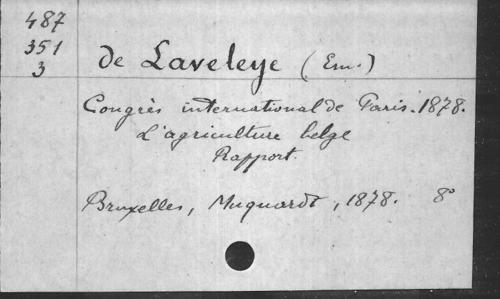 487
351
3
de Laveleye (Em.)
Congrès international de Paris. 1878.
L'agriculture belge
Rapport.
Bruxelles, Muquardt, 1878. 8°